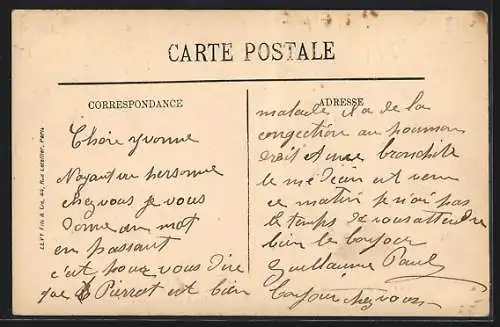 CARTE POSTALE
CORRESPONDANCE
Chère Yvonne
N'ayant vu personne
chez vous je vous
donne un mot
en passant
c'est pour vous dire
que Pierrot est bien
ADRESSE
malade il a de la
congection au poumon
droit et une bronchite
le médecin est venu
ce matin je n'ai pas
le temps de vous attendre
bien le bonjour
Guillaume Paul
bonjour chez vous
LEVY Fils & Cie, 44, Rue Letellier, Paris